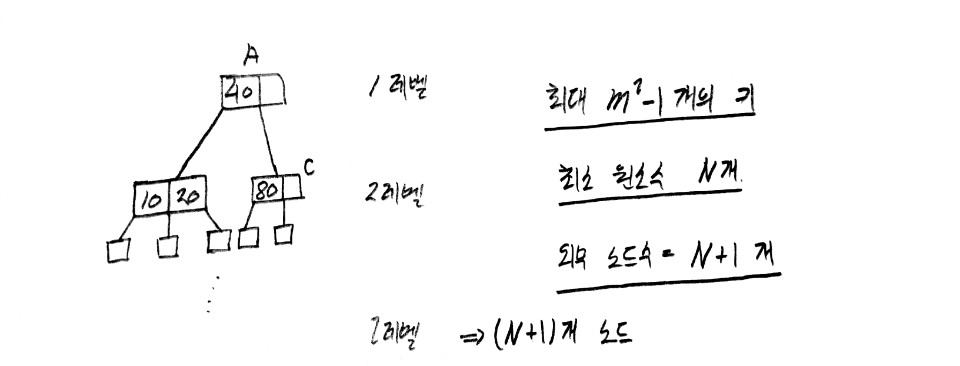 A
40
1레벨
최대 m²-1 개의 키
C
10 20
80
2레벨
최소 원소수 N개
외부 노드수 = N+1 개
⇒ (N+1)개 노드